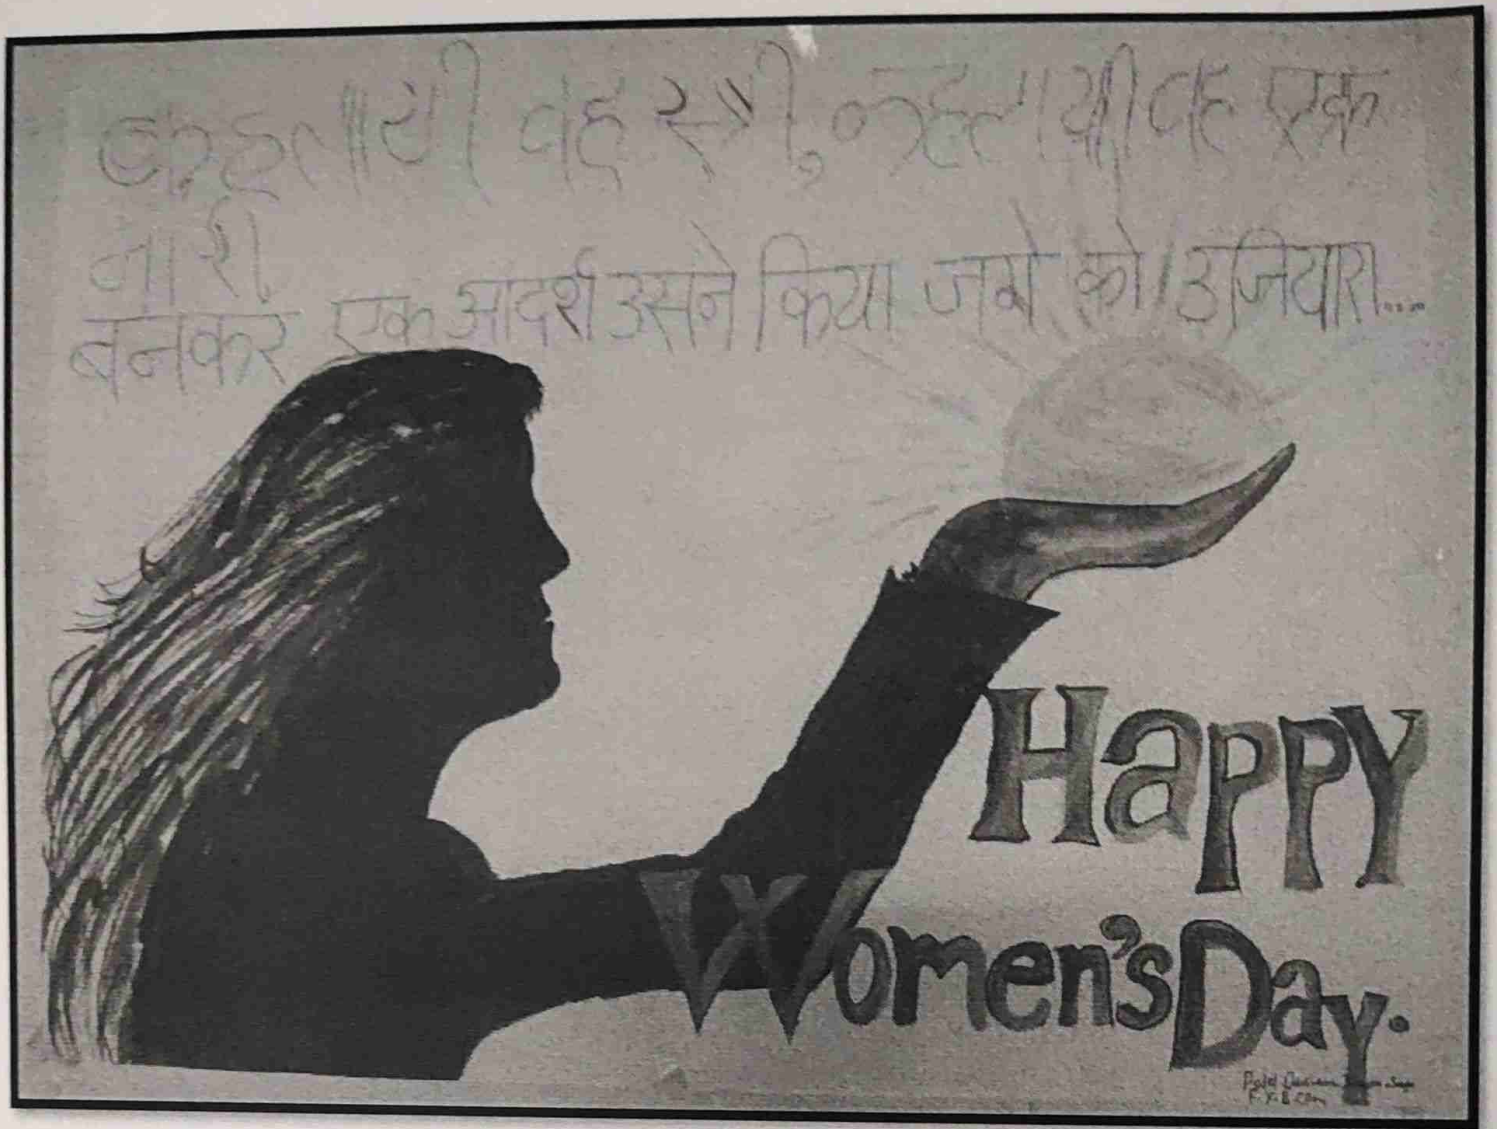 कहलायी वह स्त्री, कहलायी वह एक
नारी
बनकर एक आदर्श उसने किया जग को उजियारा....
Happy
Women's Day.
F.Y.B.Com